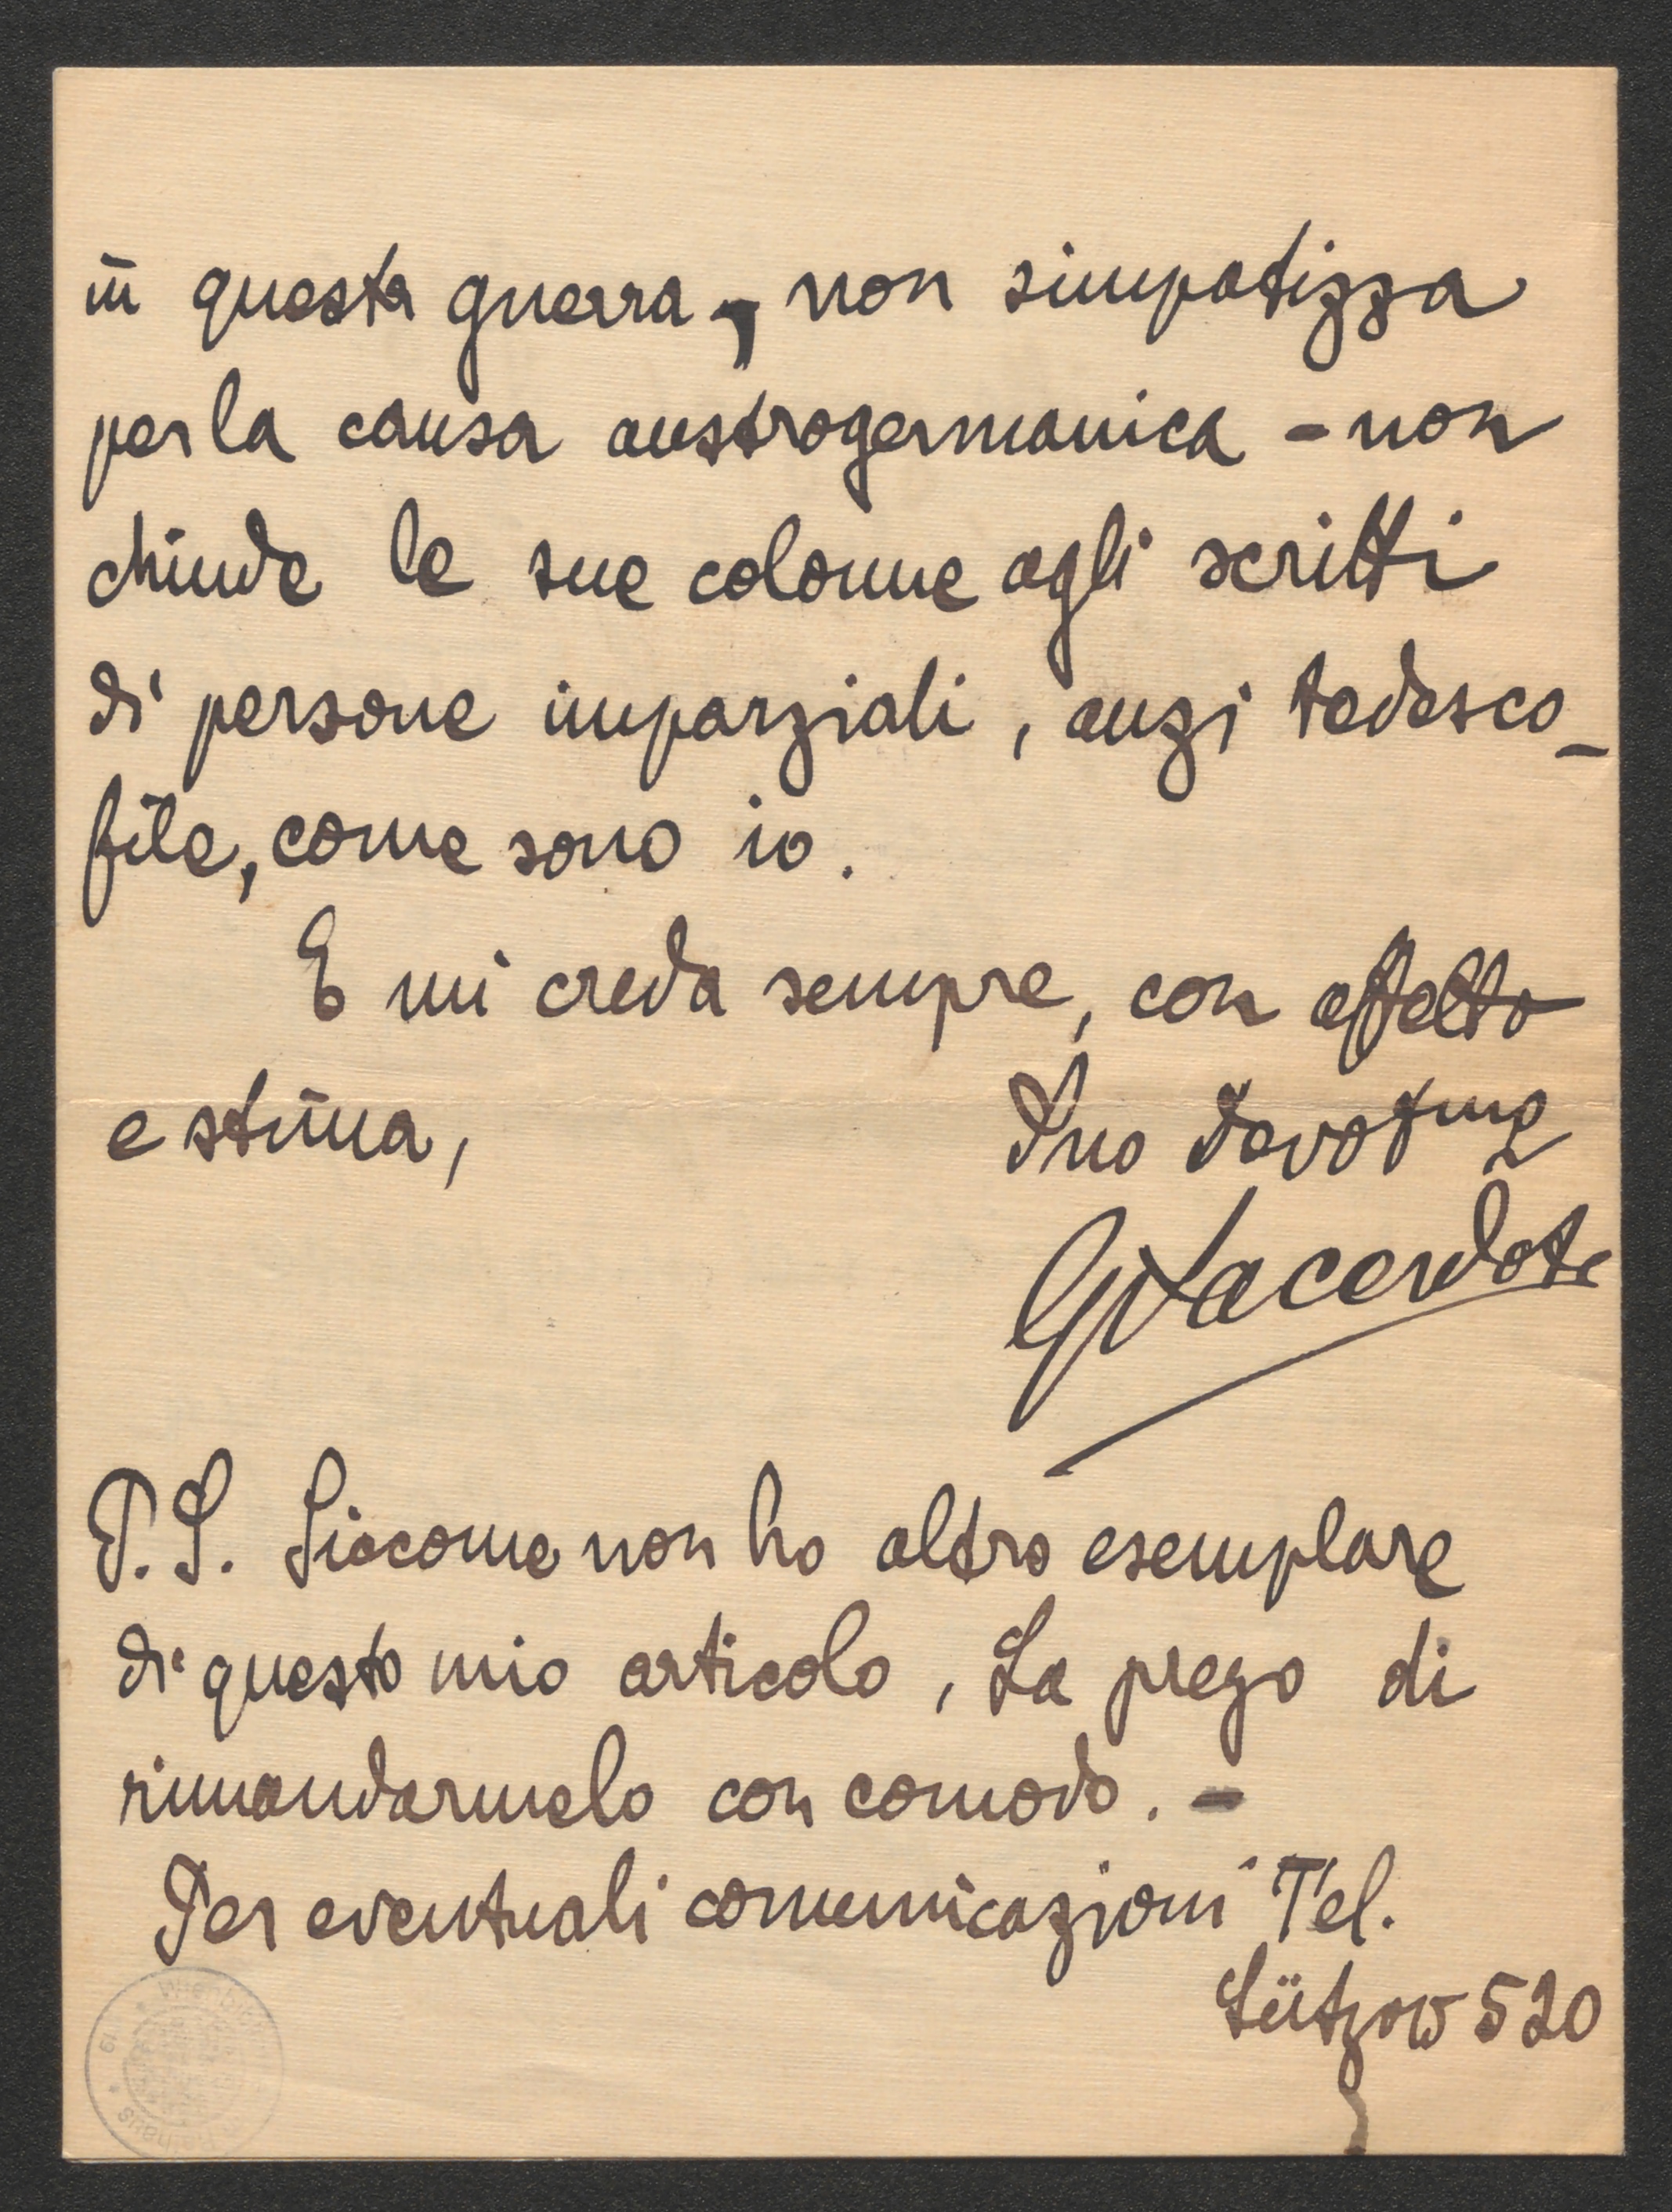 in questa guerra, non simpatizza
per la causa austrogermanica - non
chiude le sue colonne agli scritti
di persone imparziali, anzi tedesco-
file, come sono io.
E mi creda sempre, con affetto
e stima,
Suo devotmo
GSacerdote
P.S. Siccome non ho altro esemplare
di questo mio articolo, La prego di
rimandarmelo con comodo. -
Per eventuali comunicazioni Tel.
Lützow 520